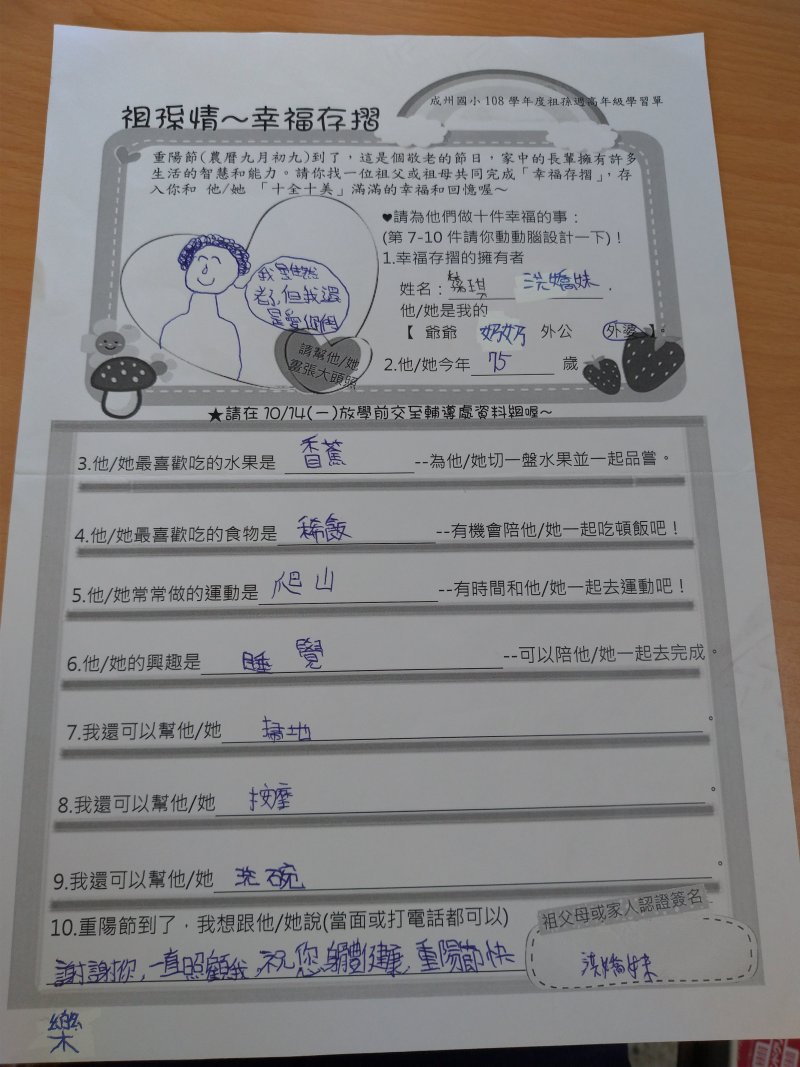 成州國小 108 學年度祖孫週高年級學習單
祖孫情～幸福存摺
重陽節(農曆九月初九)到了，這是個敬老的節日，家中的長輩擁有許多
生活的智慧和能力。請你找一位祖父或祖母共同完成「幸福存摺」，存
入你和 他/她 「十全十美」滿滿的幸福和回憶喔～
我雖然
老了,但我還
是愛你們
請幫他/她
畫張大頭照
♥請為他們做十件幸福的事：
(第 7-10 件請你動動腦設計一下)！
1.幸福存摺的擁有者
姓名： 嬌妹
他/她是我的
【 爺爺 奶奶 外公 外婆 】。
2.他/她今年 75 歲
★請在 10/14(一)放學前交至輔導處資料組喔～
3.他/她最喜歡吃的水果是 香蕉 --為他/她切一盤水果並一起品嘗。
4.他/她最喜歡吃的食物是 稀飯 --有機會陪他/她一起吃頓飯吧！
5.他/她常常做的運動是 爬山 --有時間和他/她一起去運動吧！
6.他/她的興趣是 睡覺 --可以陪他/她一起去完成。
7.我還可以幫他/她 掃地 。
8.我還可以幫他/她 按摩 。
9.我還可以幫他/她 洗碗 。
10.重陽節到了，我想跟他/她說(當面或打電話都可以)
謝謝你,一直照顧我,祝您身體健康,重陽節快
樂
祖父母或家人認證簽名
嬌妹